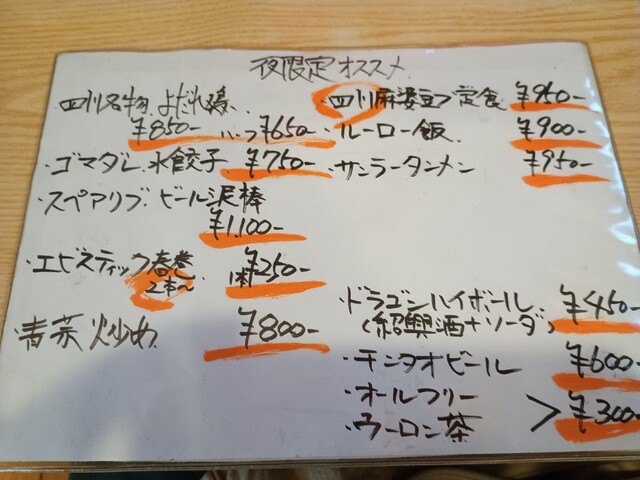 夜限定オススメ
・四川名物 よだれ鶏
¥850- ハーフ ¥650-
・ゴマダレ水餃子 ¥750-
・スペアリブ ビール
¥1,100-
・エビスティック春巻 1本 ¥250-
2本〜
・青菜炒め ¥800-
・四川麻婆豆フ定食 ¥950-
・ルーロー飯 ¥900-
・サンラータンメン ¥950-
・ドラゴンハイボール ¥450-
(紹興酒+ソーダ)
・チンタオビール ¥600-
・オールフリー
・ウーロン茶 > ¥300-